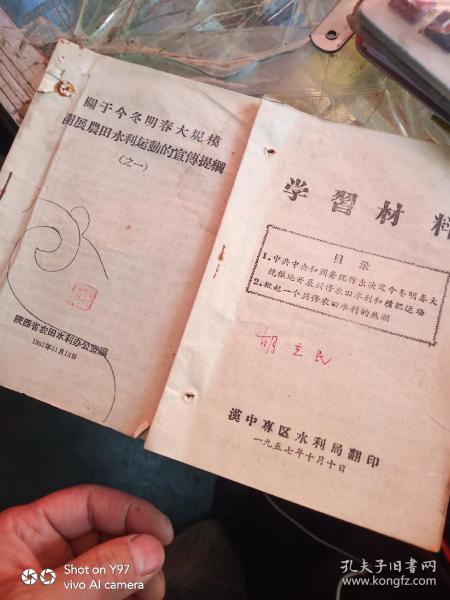 關于今冬明春大規模
開展農田水利运動的宣傳提綱
(之一)
陕西省农田水利办公室編
学習材料
目录
1.中共中央和国务院作出决定今冬明春大
规模地开展兴修农田水利和積肥运动
2.掀起一个兴修农田水利的热潮
胡立民
漢中專区水利局翻印
一九五七年十月十日
Shot on Y97
vivo AI camera
孔夫子旧书网
www.kongfz.com